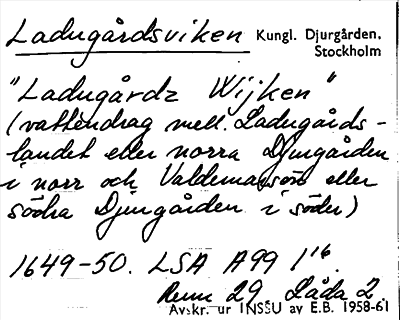 Ladugårdsviken Kungl. Djurgården,
Stockholm
"Ladugårdz Wijken"
(vattendrag mell. Ladugårds-
landet eller norra Djurgården
i norr och Valdemarsön eller
södra Djurgården i söder)
1649-50. LSA A99 1 16.
Rum 29 Låda 2
Avskr. ur INSSU av E.B. 1958-61